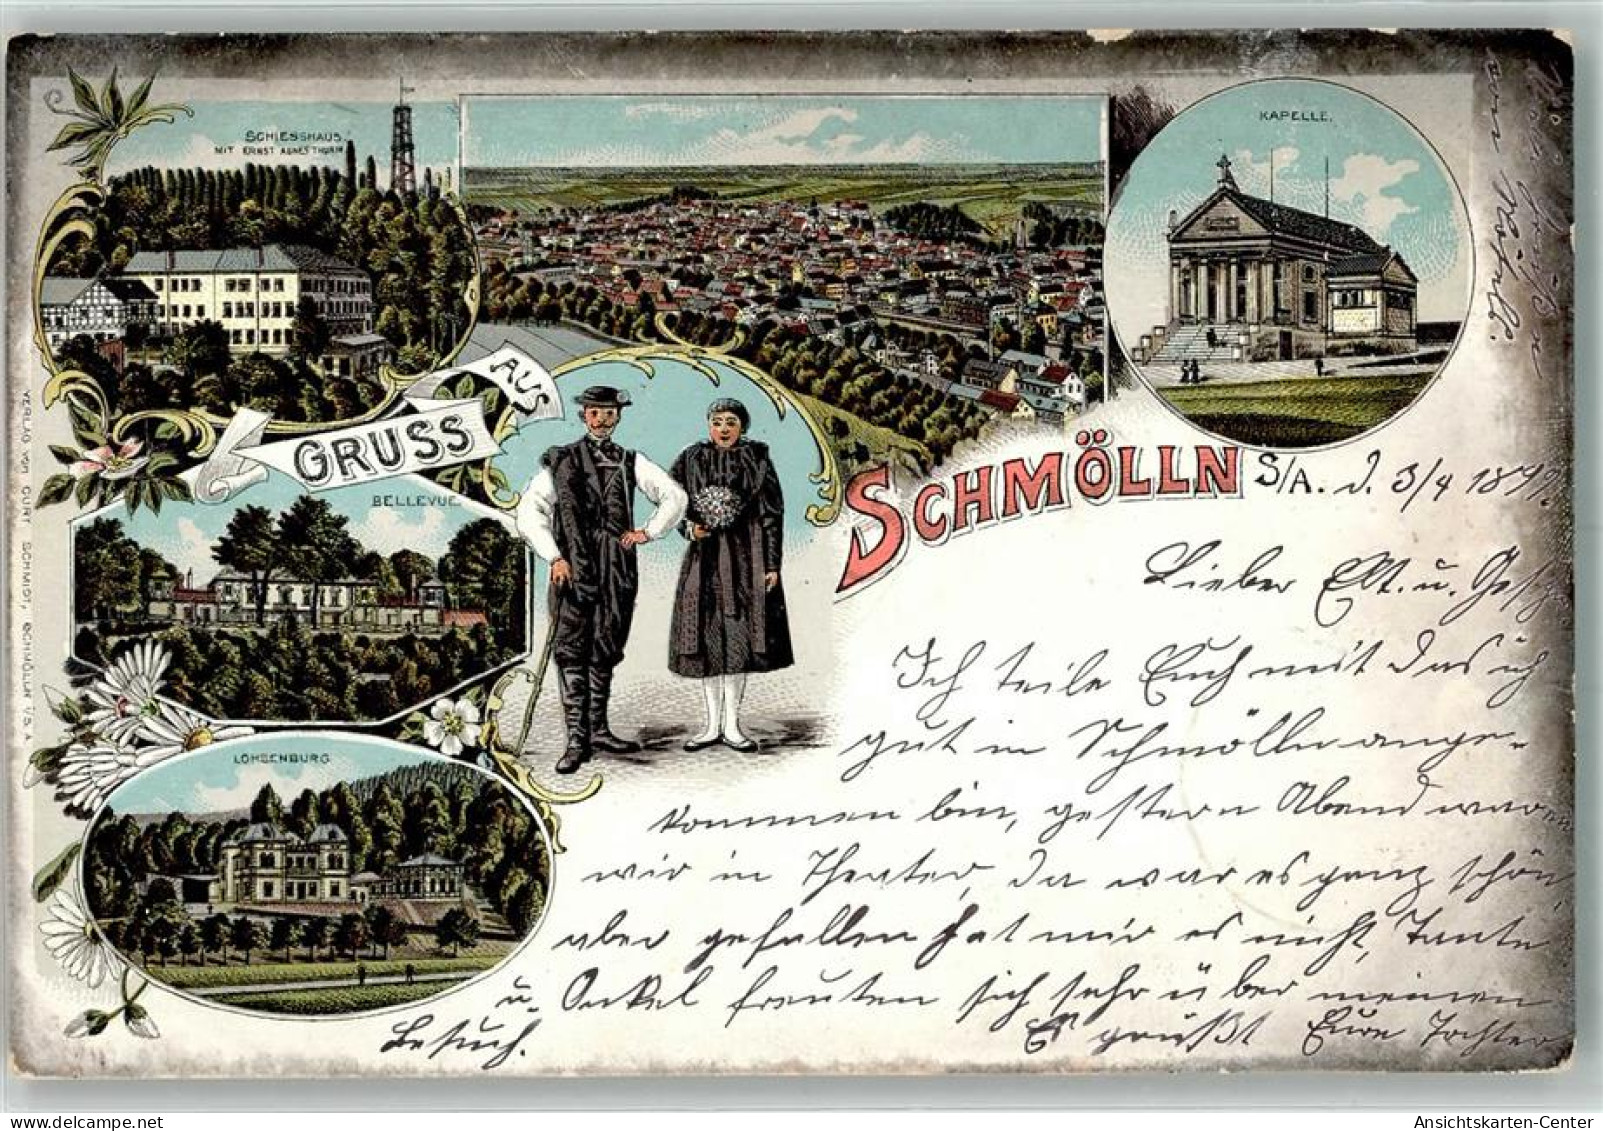 SCHIESSHAUS
MIT ERNST AGNES THURM
KAPELLE.
GRUSS AUS
SCHMÖLLN S/A. d. 3/4 1899.
BELLEVUE.
LOHSENBURG
VERLAG VON CURT SCHMIDT, SCHMÖLLN i/S. A.
Lieber Elt. u. Gesch.
Ich teile Euch mit das ich
gut in Schmölln ange-
kommen bin, gestern Abend waren
wir in Theater, da war es ganz schön,
aber gefallen hat mir es nicht, Tante
u. Onkel freuten sich sehr über meinen
Besuch. Es grüßt Eure Tochter
Viele Grüße
von
Ansichtskarten-Center